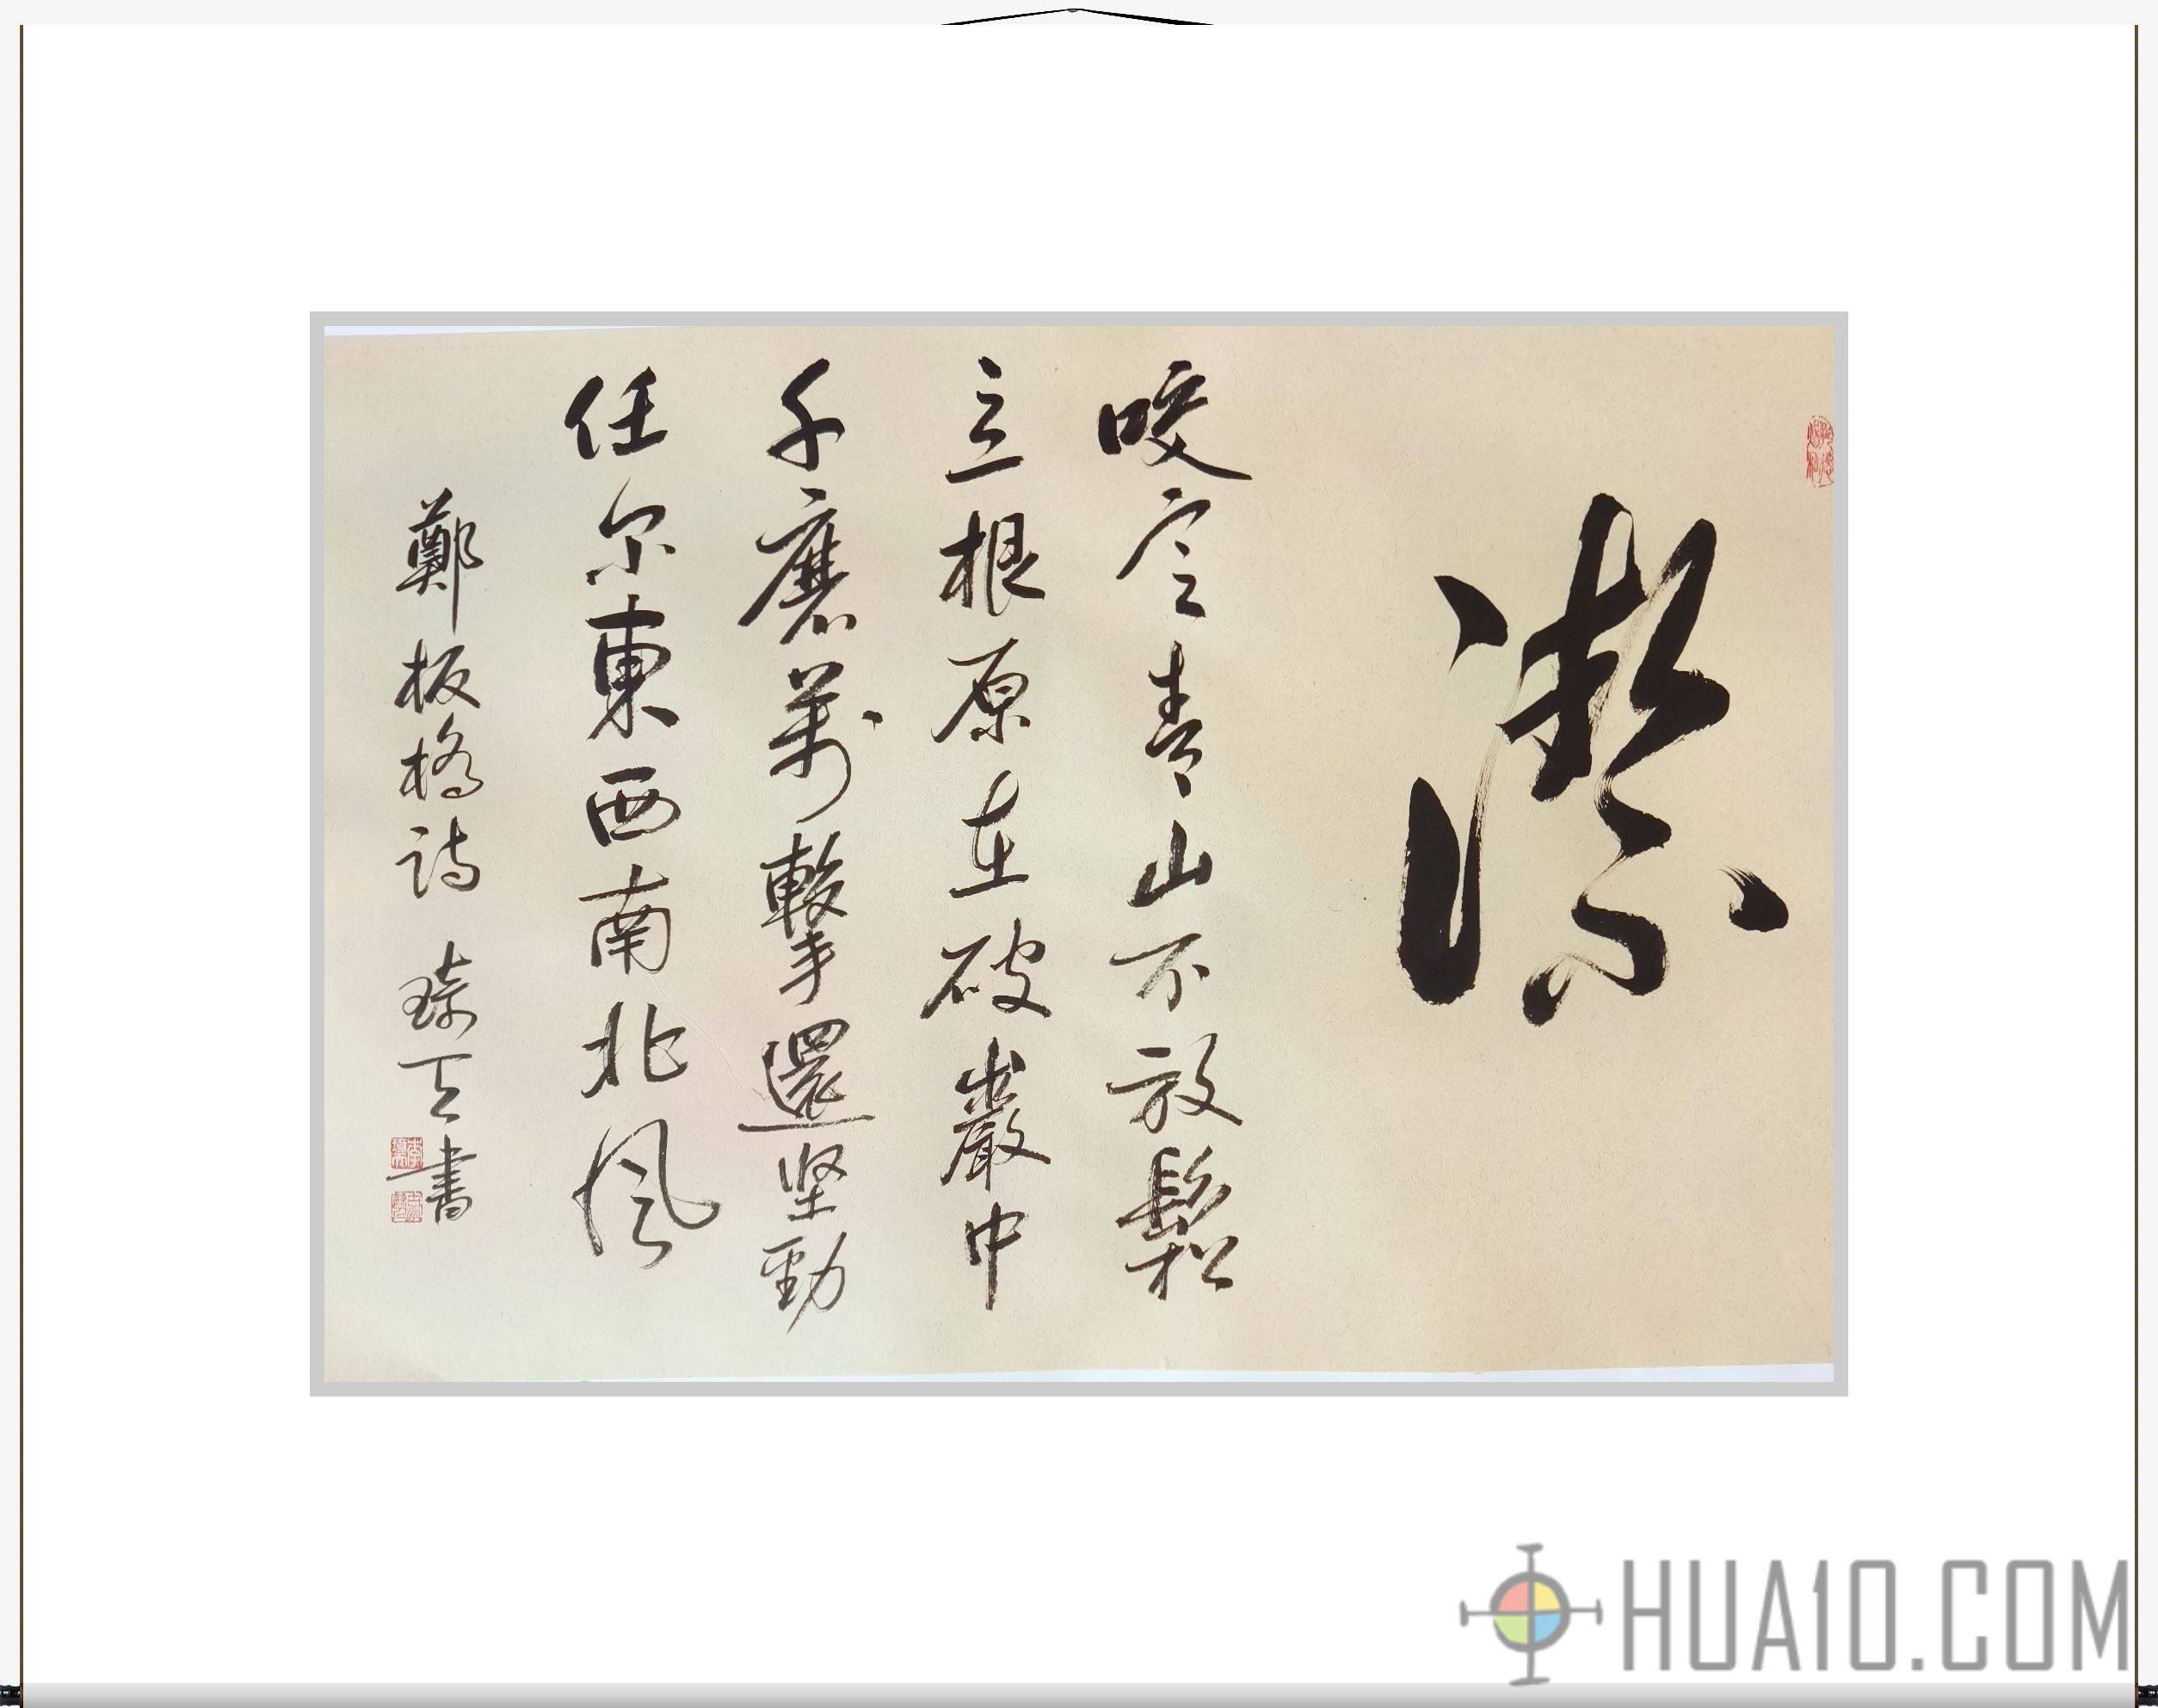 潔
咬定青山不放鬆
立根原在破巖中
千磨萬擊還坚勁
任尔東西南北風
鄭板橋詩 書
HUA10.COM